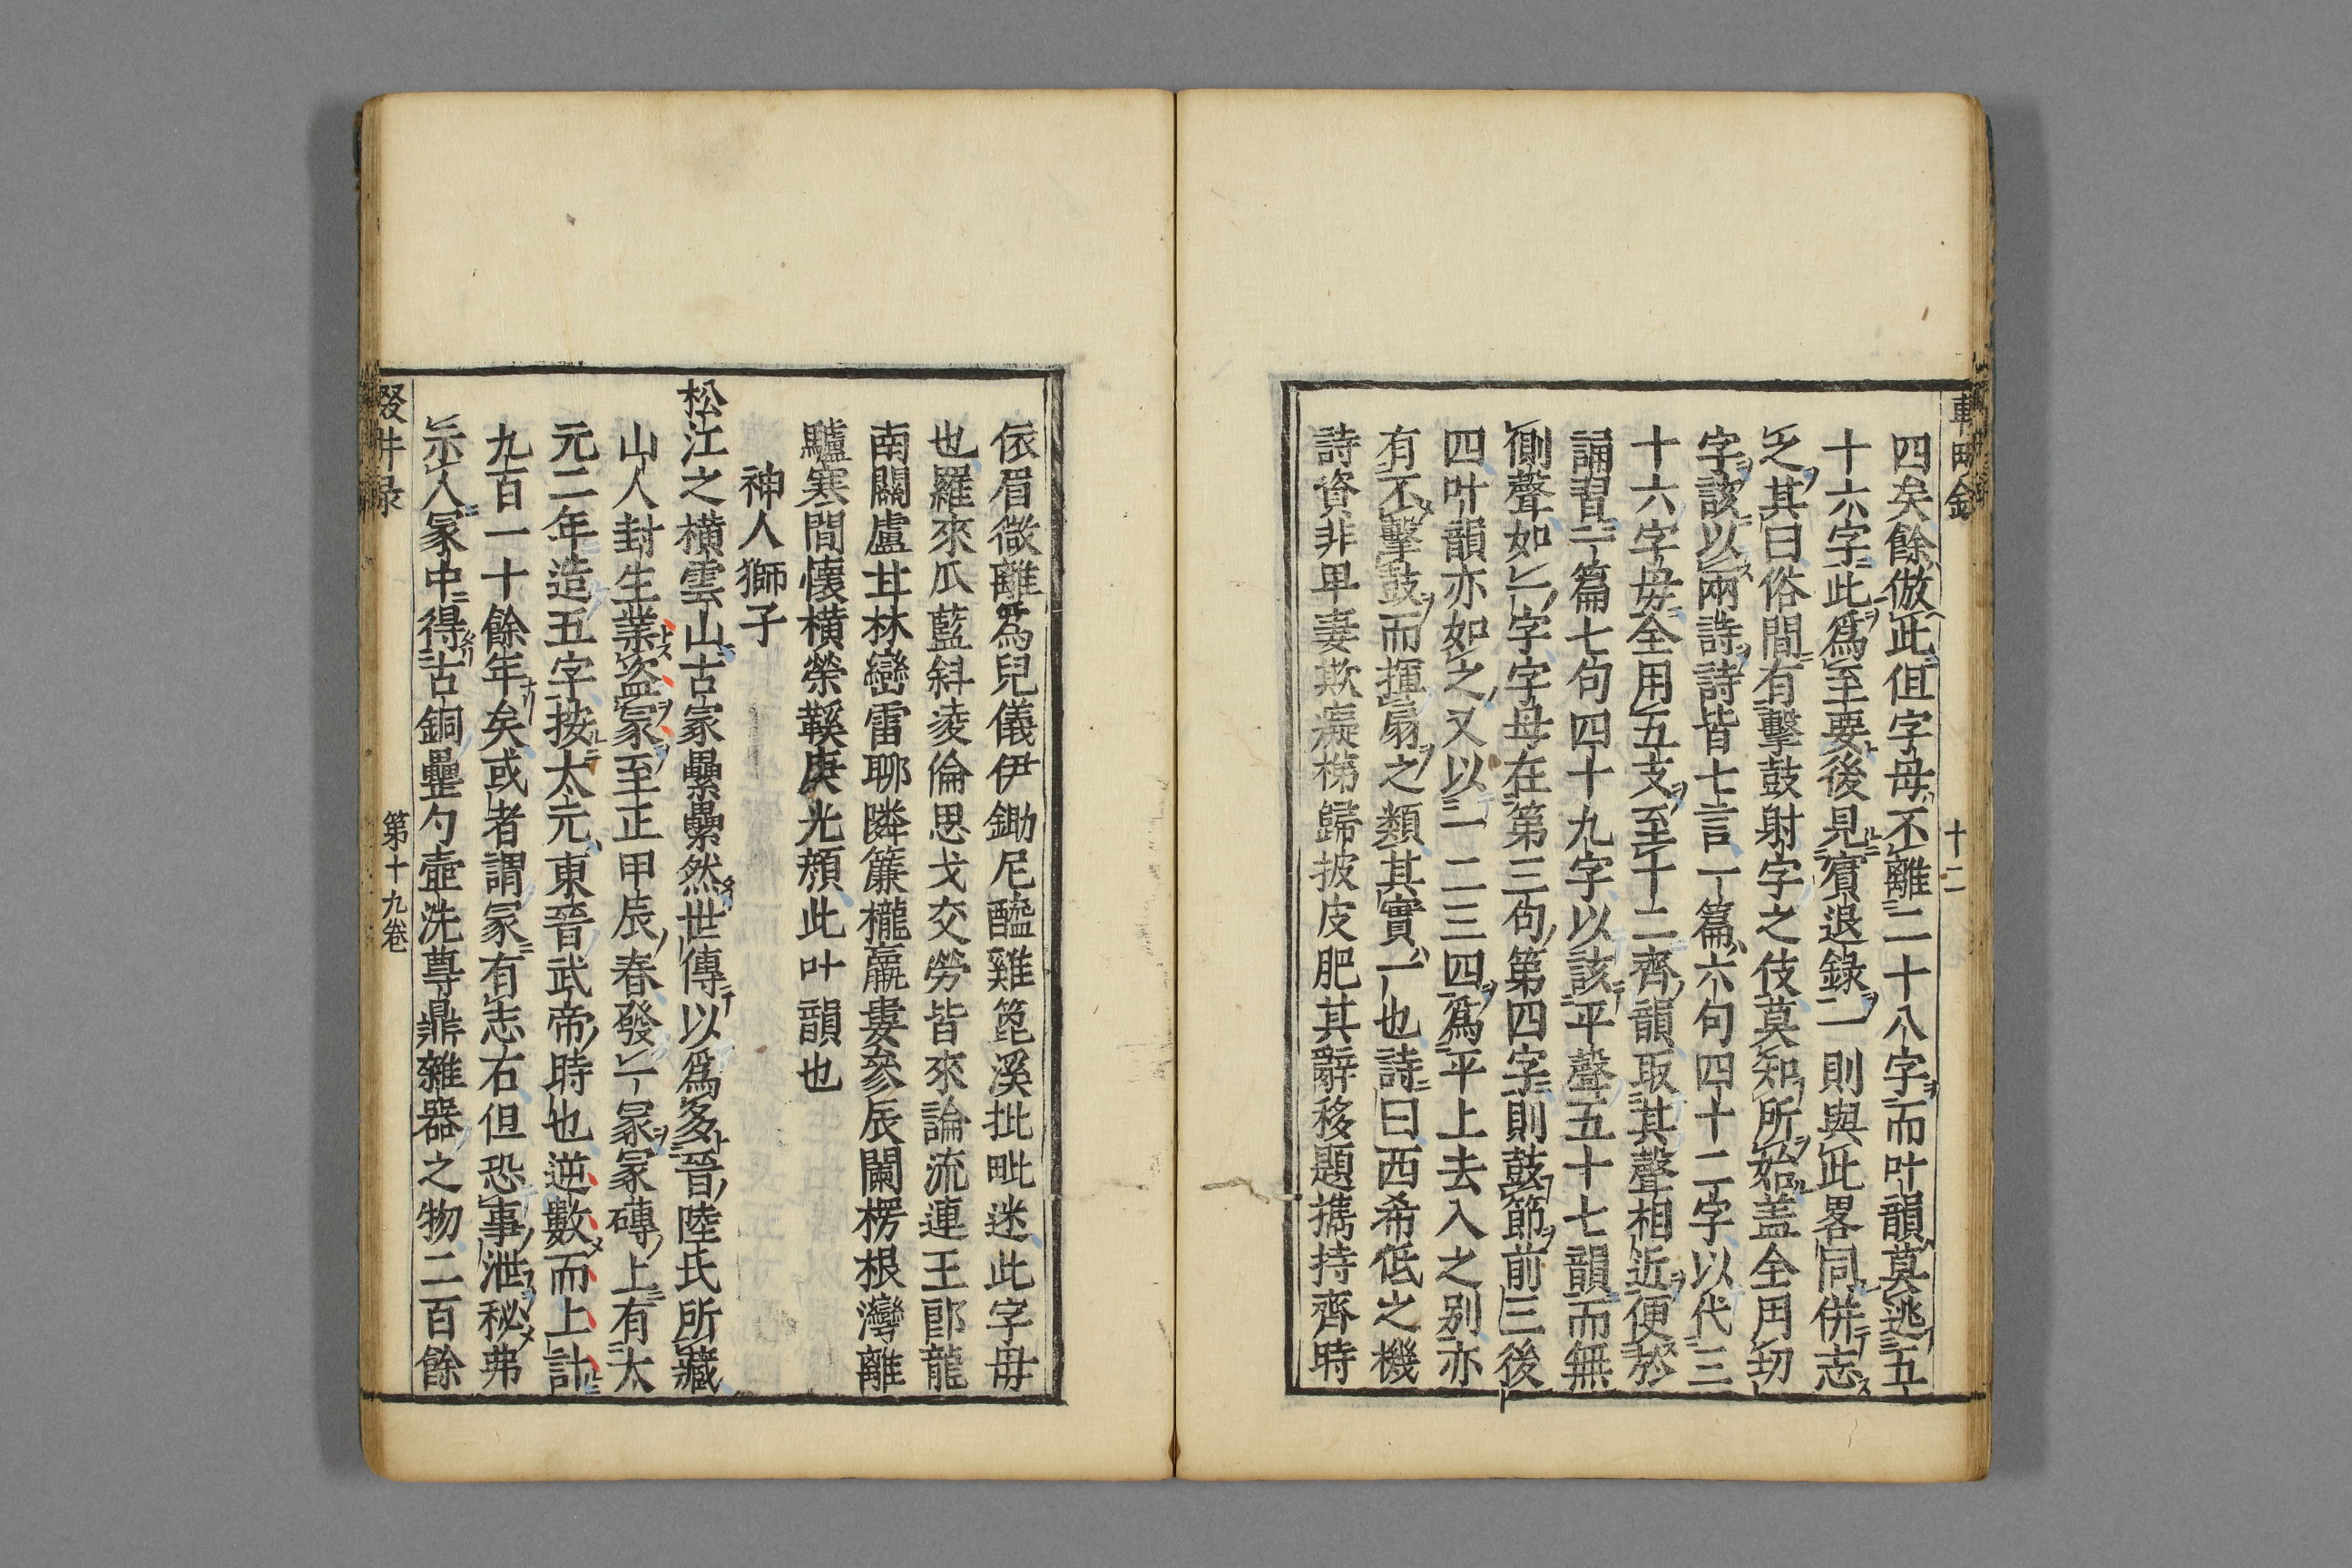 十二
四矣餘倣此但字母不離二十八字而叶韻莫逃五
十六字此爲至要後見賓退錄一則與此畧同併志
之其曰俗間有擊鼓射字之伎莫知所始盖全用切
字該以兩詩詩皆七言一篇六句四十二字以代三
十六字母全用五支至十二齊韻取其聲相近便於
誦習一篇七句四十九字以該平聲五十七韻而無
側聲如一字字母在第三句第四字則鼓節前三後
四叶韻亦如之又以一二三四爲平上去入之别亦
有不擊鼓而揮扇之類其實一也詩曰西希低之機
詩資非卑妻欺癡梯歸披皮肥其辭移題擕持齊時
依眉微離爲兒儀伊鋤尼醯雞箆溪批毗迷此字母
也羅來瓜藍斜凌倫思戈交勞皆來論流連王郎龍
南關盧甘林巒雷聊隣簾櫳羸婁參辰闌楞根灣離
驢寒間懷横榮鞵庚光頽此叶韻也
神人獅子
松江之横雲山古冢纍纍然世傳以爲多晉陸氏所藏
山人封生業盜冢至正甲辰春發一冢冢磚上有太
元二年造五字按太元東晉武帝時也逆數而上計
九百一十餘年矣或者謂冢有志石但恐事泄秘弗
示人冢中得古銅罍勺壺洗尊鼎雜器之物二百餘
第十九卷